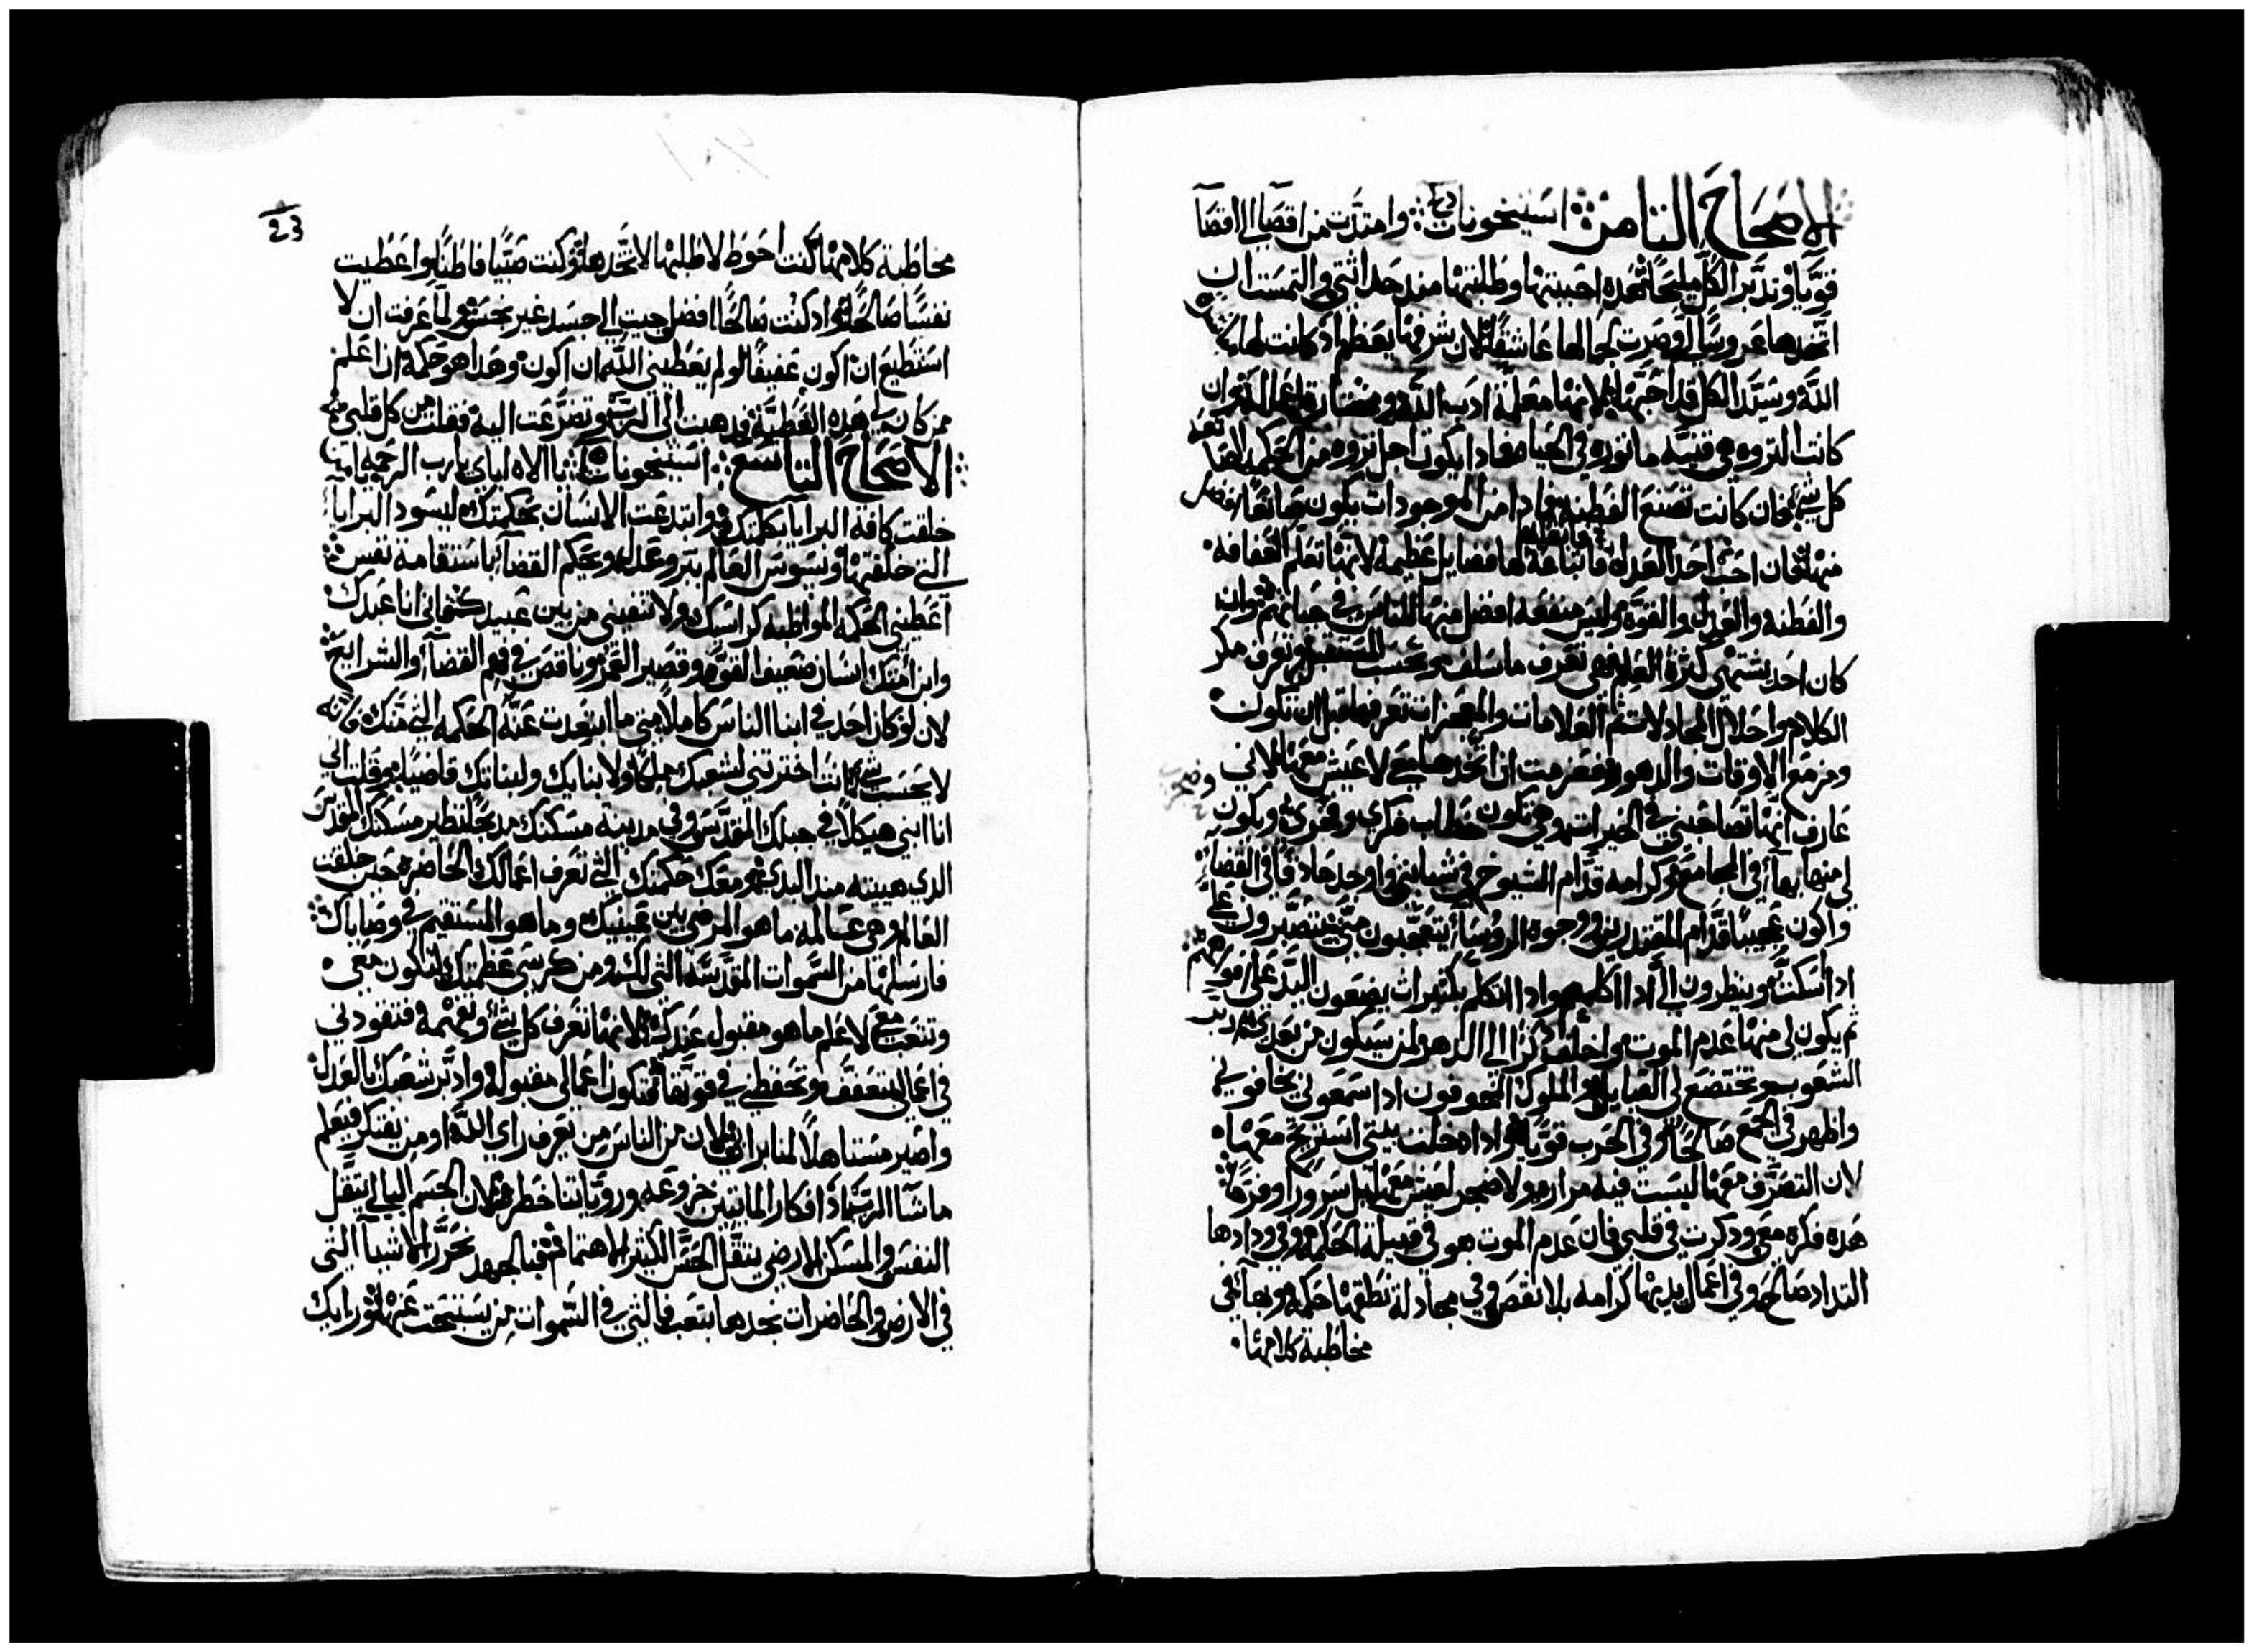 الاصحاح الثامن استيخونات وامتدت من اقصا الي اقصا
قويا وتدبر الكل مليحا هده احببتها وطلبتها مند حداثتي والتمست ان
اتخدها عروسا لي وصرت لجمالها عاشقا لان شرفها يعظم اد كانت لها
الله وسيد الكل قد احبها لانها معلمة ادب الله ومختارة اعماله وان
كانت التروه هي قنيه ماثوره في الحياه فمادا يكون اجل تروه من الحكمه الصانعه
كل شي فان كانت تصنع الفطنه فمادا من الموجودات يكون صانعا افضل
منها فان احب احد العدل فاتعابه
لها فضايل عظيمة لانها تعلم العفافه
والفطنه والعدل والقوة وليس منفعه افضل منها للناس في حياتهم وان
كان احد يشتهي كثرة العلم فهي تعرف ما سلف وتحسب المستقبل وتعرف مكر
الكلام واحلال المجادلات تم العلامات والمعجزات تعرفها قبل ان تكون
ومزمع الاوقات والدهور فعزمت ان اتخدها معي لاعيش معها لاني
عارف انها تصاحبني في الخيرات وهي تكون خطاب فكري وضجري ويكون
لي منها بهاء في المجامع وكرامه قدام الشيوخ في شبابتي واوجد حادقا في القضا
واكون عجيبا قدام المقتدرين ووجوه الروسا يتعجبون مني يتصبرون علي
ادا سكت وينظرون الي ادا اكلمهم وادا اتكلم بكثيرات يضعون اليد علي افواههم
ثم يكون لي منها عدم الموت واخلف دكرا الي الدهر لمن سيكون من بعدي وادبر
الشعوب وتختضع لي القبايل والملوك المخوفون ادا سمعوني يخافوني
واظهر في الجمع صالحا وفي الحرب قويا وادا دخلت بيتي استريح معها
لان التصرف معها ليست فيه مراره ولا ضجر لعيش معها بل سرورا وفرحا
هده فكره معي ودكرت في قلبي فان عدم الموت هو في قبيلة الحكمه وفي ودادها
التداد صالح وفي اعمال يديها كرامه بلا نقص وفي مجادلة نطقها حكمه وبهاء في
مخاطبة كلامها
23
مخاطبة كلامها كنت احوط لاطلبها لاتخدها وكنت صبيا فاطنا واعطيت
نفسا صالحا واد كنت صالحا افضل جيت الي جسد غير نجس ولما عرفت ان لا
استطيع ان اكون عفيفا لو لم يعطيني الله ان اكون وهدا هو حكمه ان اعلم
ممن كان لي هده العطيه فدهبت الي الرب وتضرعت اليه فقلت من كل قلبي
الاصحاح التاسع استيخونات يا الاه اباي يا رب الرحمه
خلقت كافة البرايا بكلمتك وابتدعت الانسان بحكمتك ليسود البرايا
التي خلقتها ونسوس العالم ببر وعدل ويحكم القضا باستقامة نفس
اعطيني الحكمه المواظبه كراسيك ولا تنفيني من بين عبيدك فاني انا عبدك
وابن امتك انسان ضعيف القوه وقصير العمر وناقص في فهم القضاء والشرايع
لان لو كان احد في ابنا الناس كاملا متي ما ابتعدت عنه الحكمه التي منك فانه
لا يحسب شي انت اخترتني لشعبك ملكا ولابنايك ولبناتك قاضيا وقلت لي
انا ابني هيكلا في جبلك المقدس وفي مدينه مسكنك مدبحا نظير مسكنك المقدس
الدي هييته مند البدي ومعك حكمتك التي تعرف اعمالك الحاضره حين خلقت
العالم وهي عالمه ما هو المرضي بين عينيك وما هو المستقيم في وصاياك
فارسلها من السموات المقدسه التي لك ومن كرسي عظمتك لتكون معي
وتتعب معي لاعلم ما هو مقبول عندك لانها تعرف كل شي وتفهمه فتقودني
في اعمالي بتعفف وتحفظني في قوتها فتكون اعمالي مقبوله وادبر شعبك بالعدل
واصير مستاهلا لمنابر ابي لان من الناس من يعرف راي الله او من يفتكر فيعلم
ما شاء الرب اد افكار المايتين جزوعه وروياتنا خطره لان الجسم البالي يتقل
النفس والمسكن الارضي يتقل الحس الكثير الاهتمام فبالجهد نحرر الاشيا التي
في الارض والحاضرات نجدها بتعب فالتي في السموات من يستبحت عنها ورايك